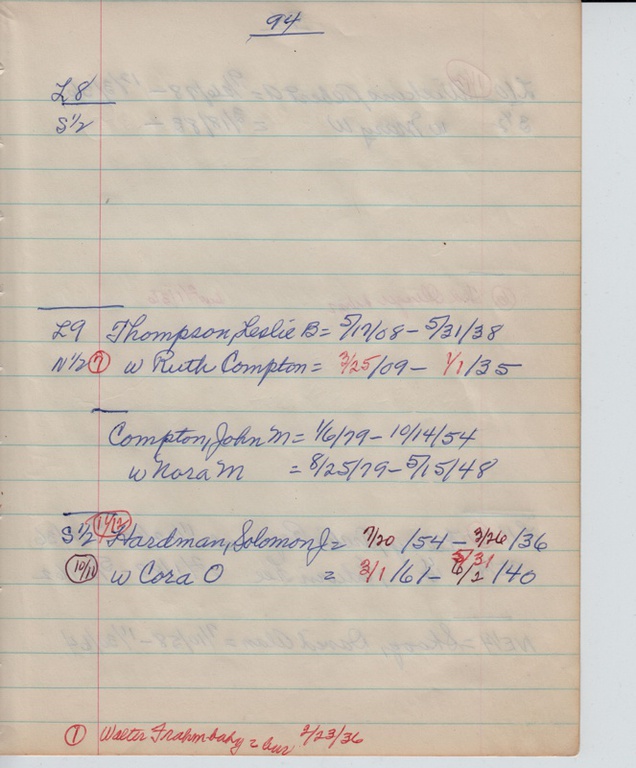 94
L8
S½
L9 Thompson, Leslie B = 5/17/08 – 5/31/38
N½ (7) w Ruth Compton = 3/25/09 – 1/1/35
Compton, John M = 1/6/79 – 10/14/54
w Nora M = 8/25/79 – 5/15/48
S½ (11/12) Hardman, Solomon J = 7/20/54 – 3/26/36
(10/11) w Cora O = 3/1/61 – 5/31 6/2/40
(1) Walter = bur 2/23/36